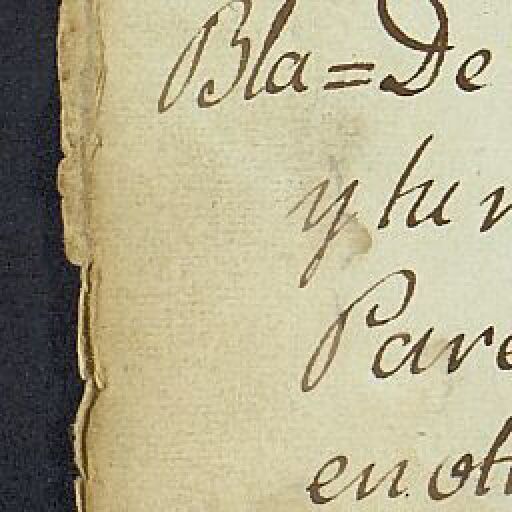 Bla=De
y tu n
Pare
en ot